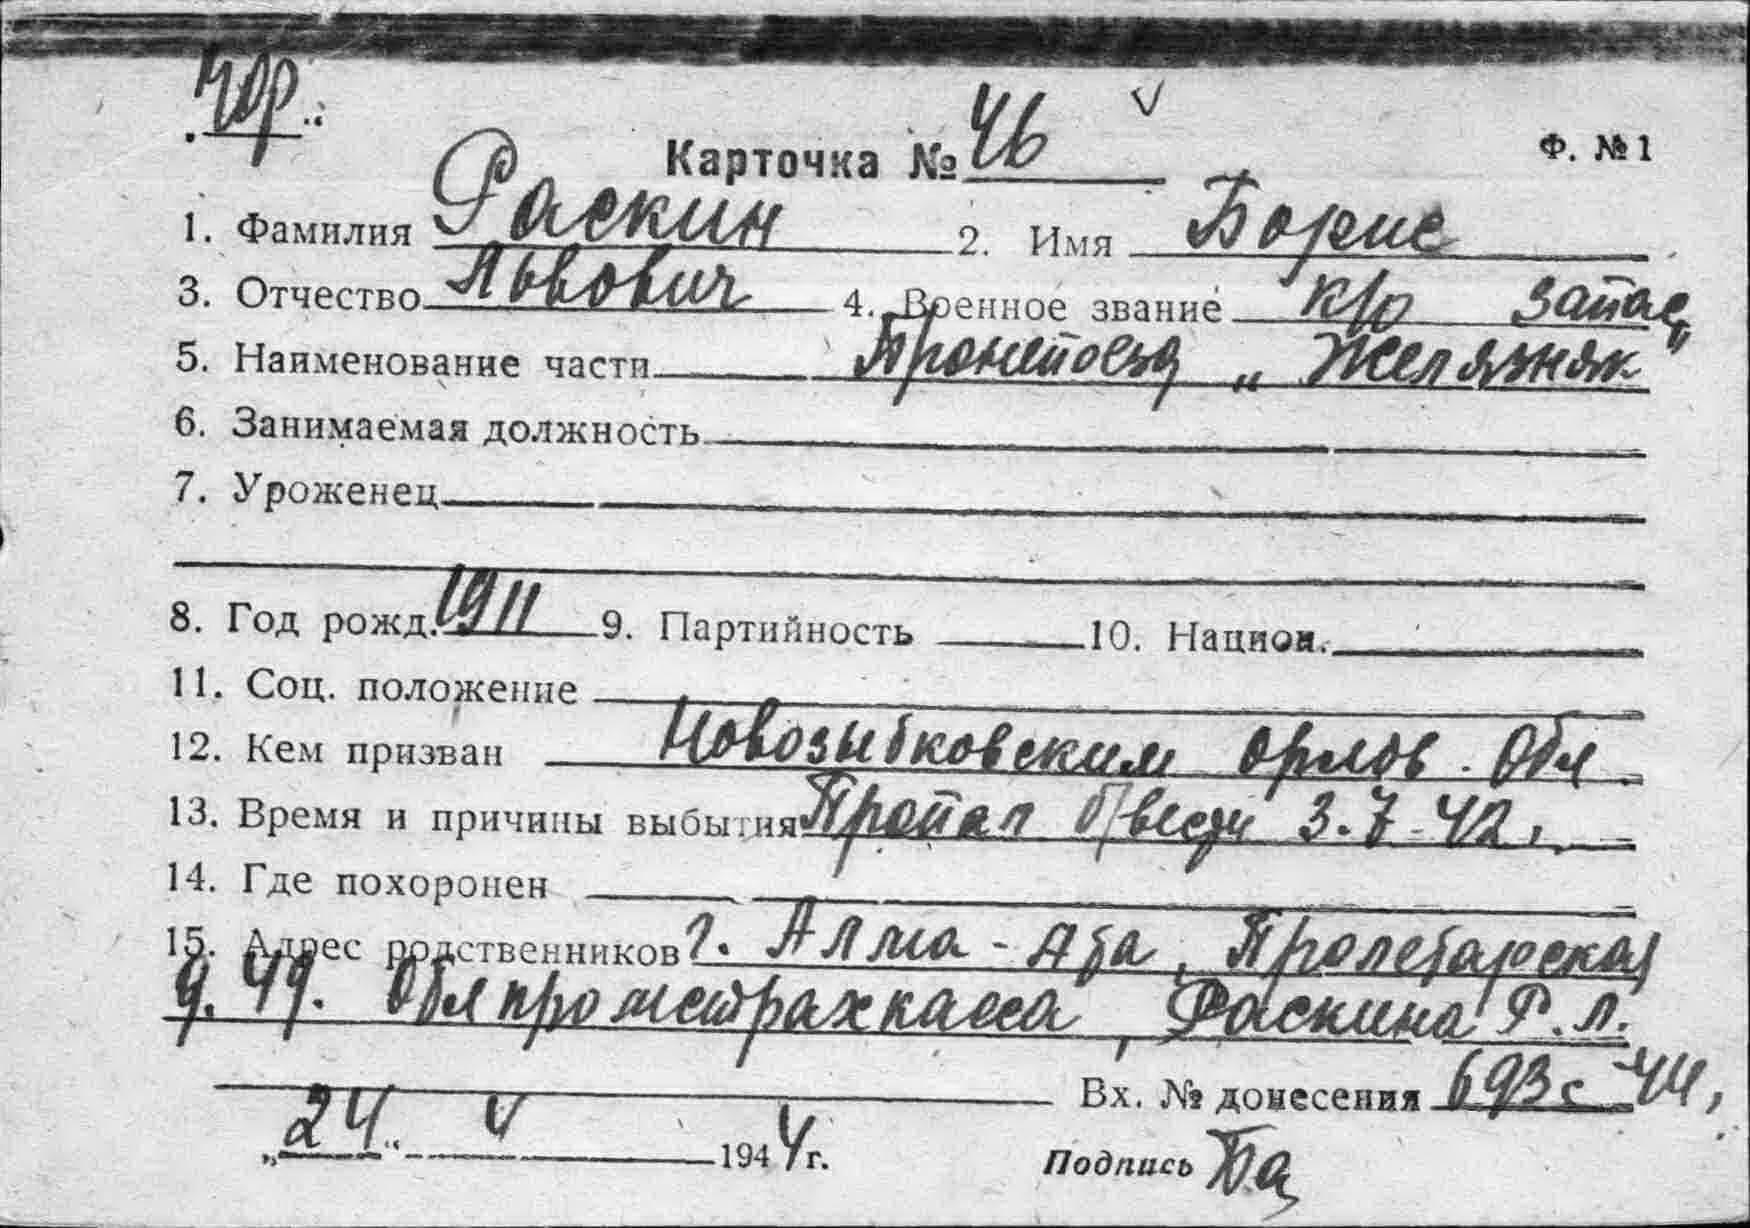 Чф.
Карточка № 46 Ф. № 1
1. Фамилия Раскин 2. Имя Борис
3. Отчество Львович 4. Военное звание к/ф запас
5. Наименование части Бронепоезд „Железняк"
6. Занимаемая должность
7. Уроженец
8. Год рожд. 1911 9. Партийность 10. Национ.
11. Соц. положение
12. Кем призван Новозыбковским Орлов. Обл.
13. Время и причины выбытия Пропал б/вести 3.7.42.
14. Где похоронен
15. Адрес родственников г. Алма-Ата, Пролетарская
д. 49. Облпромстрахкасса, Раскина Р. Л.
Вх. № донесения 693с-44,
„24" V 1944 г. Подпись